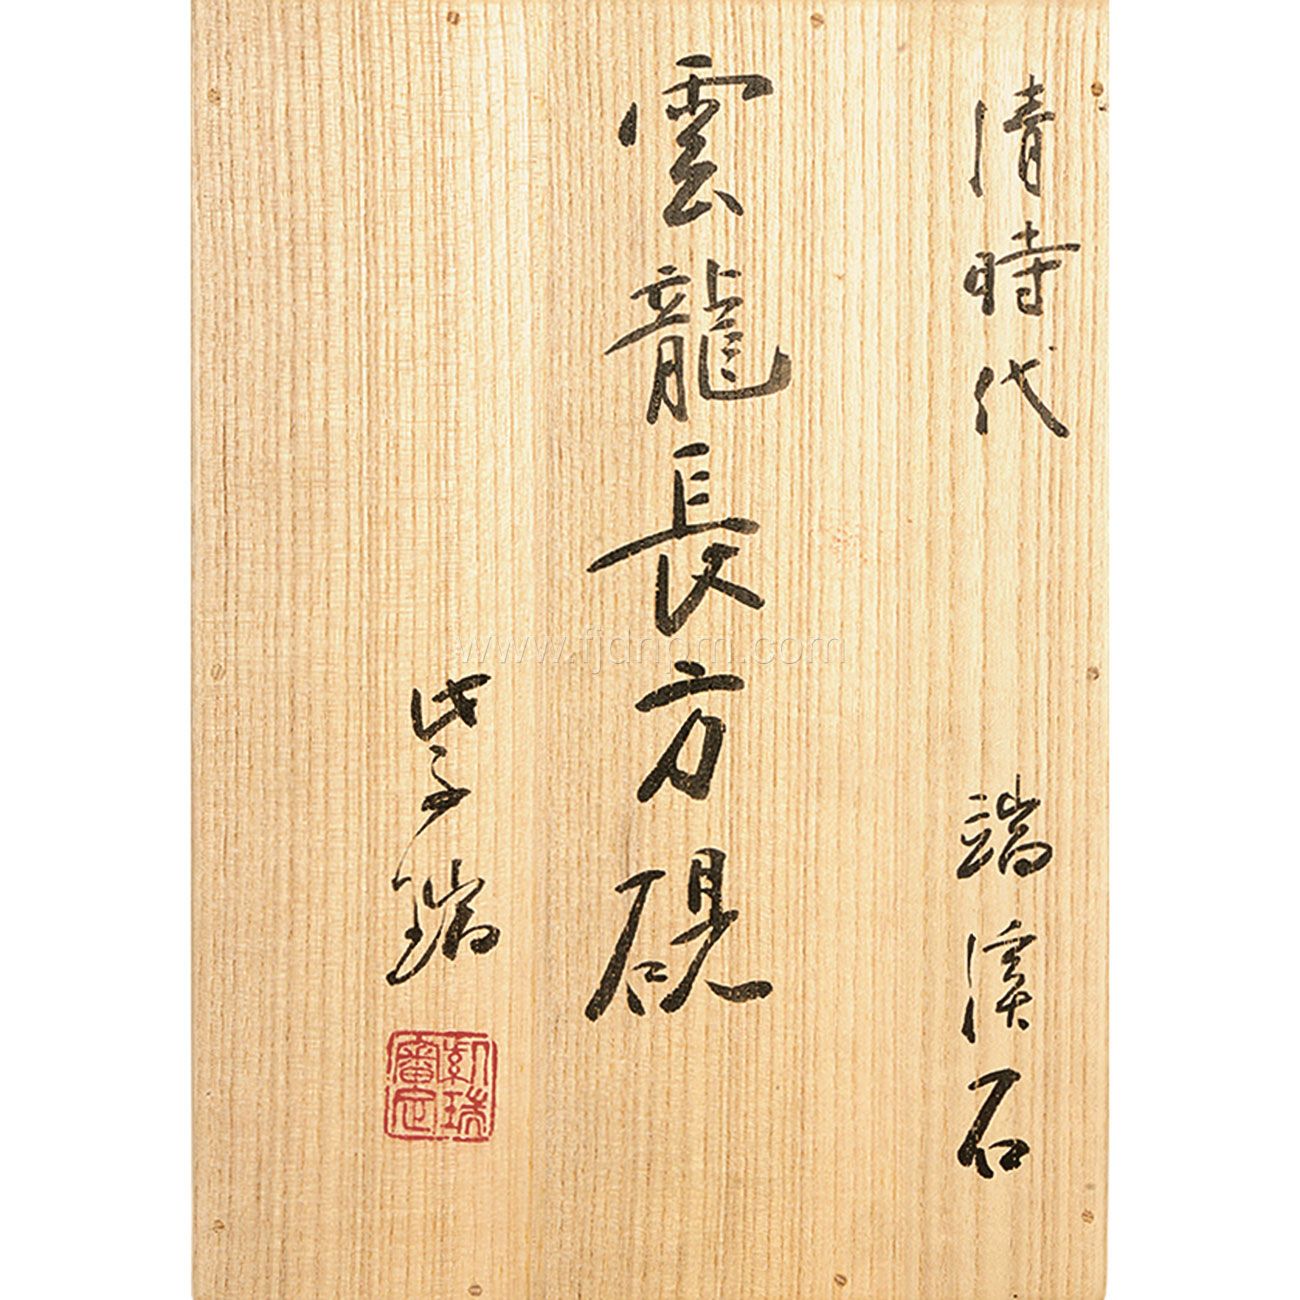 清時代 端渓石
雲龍長方硯
紫瑞
審定
www.fjdnpm.com